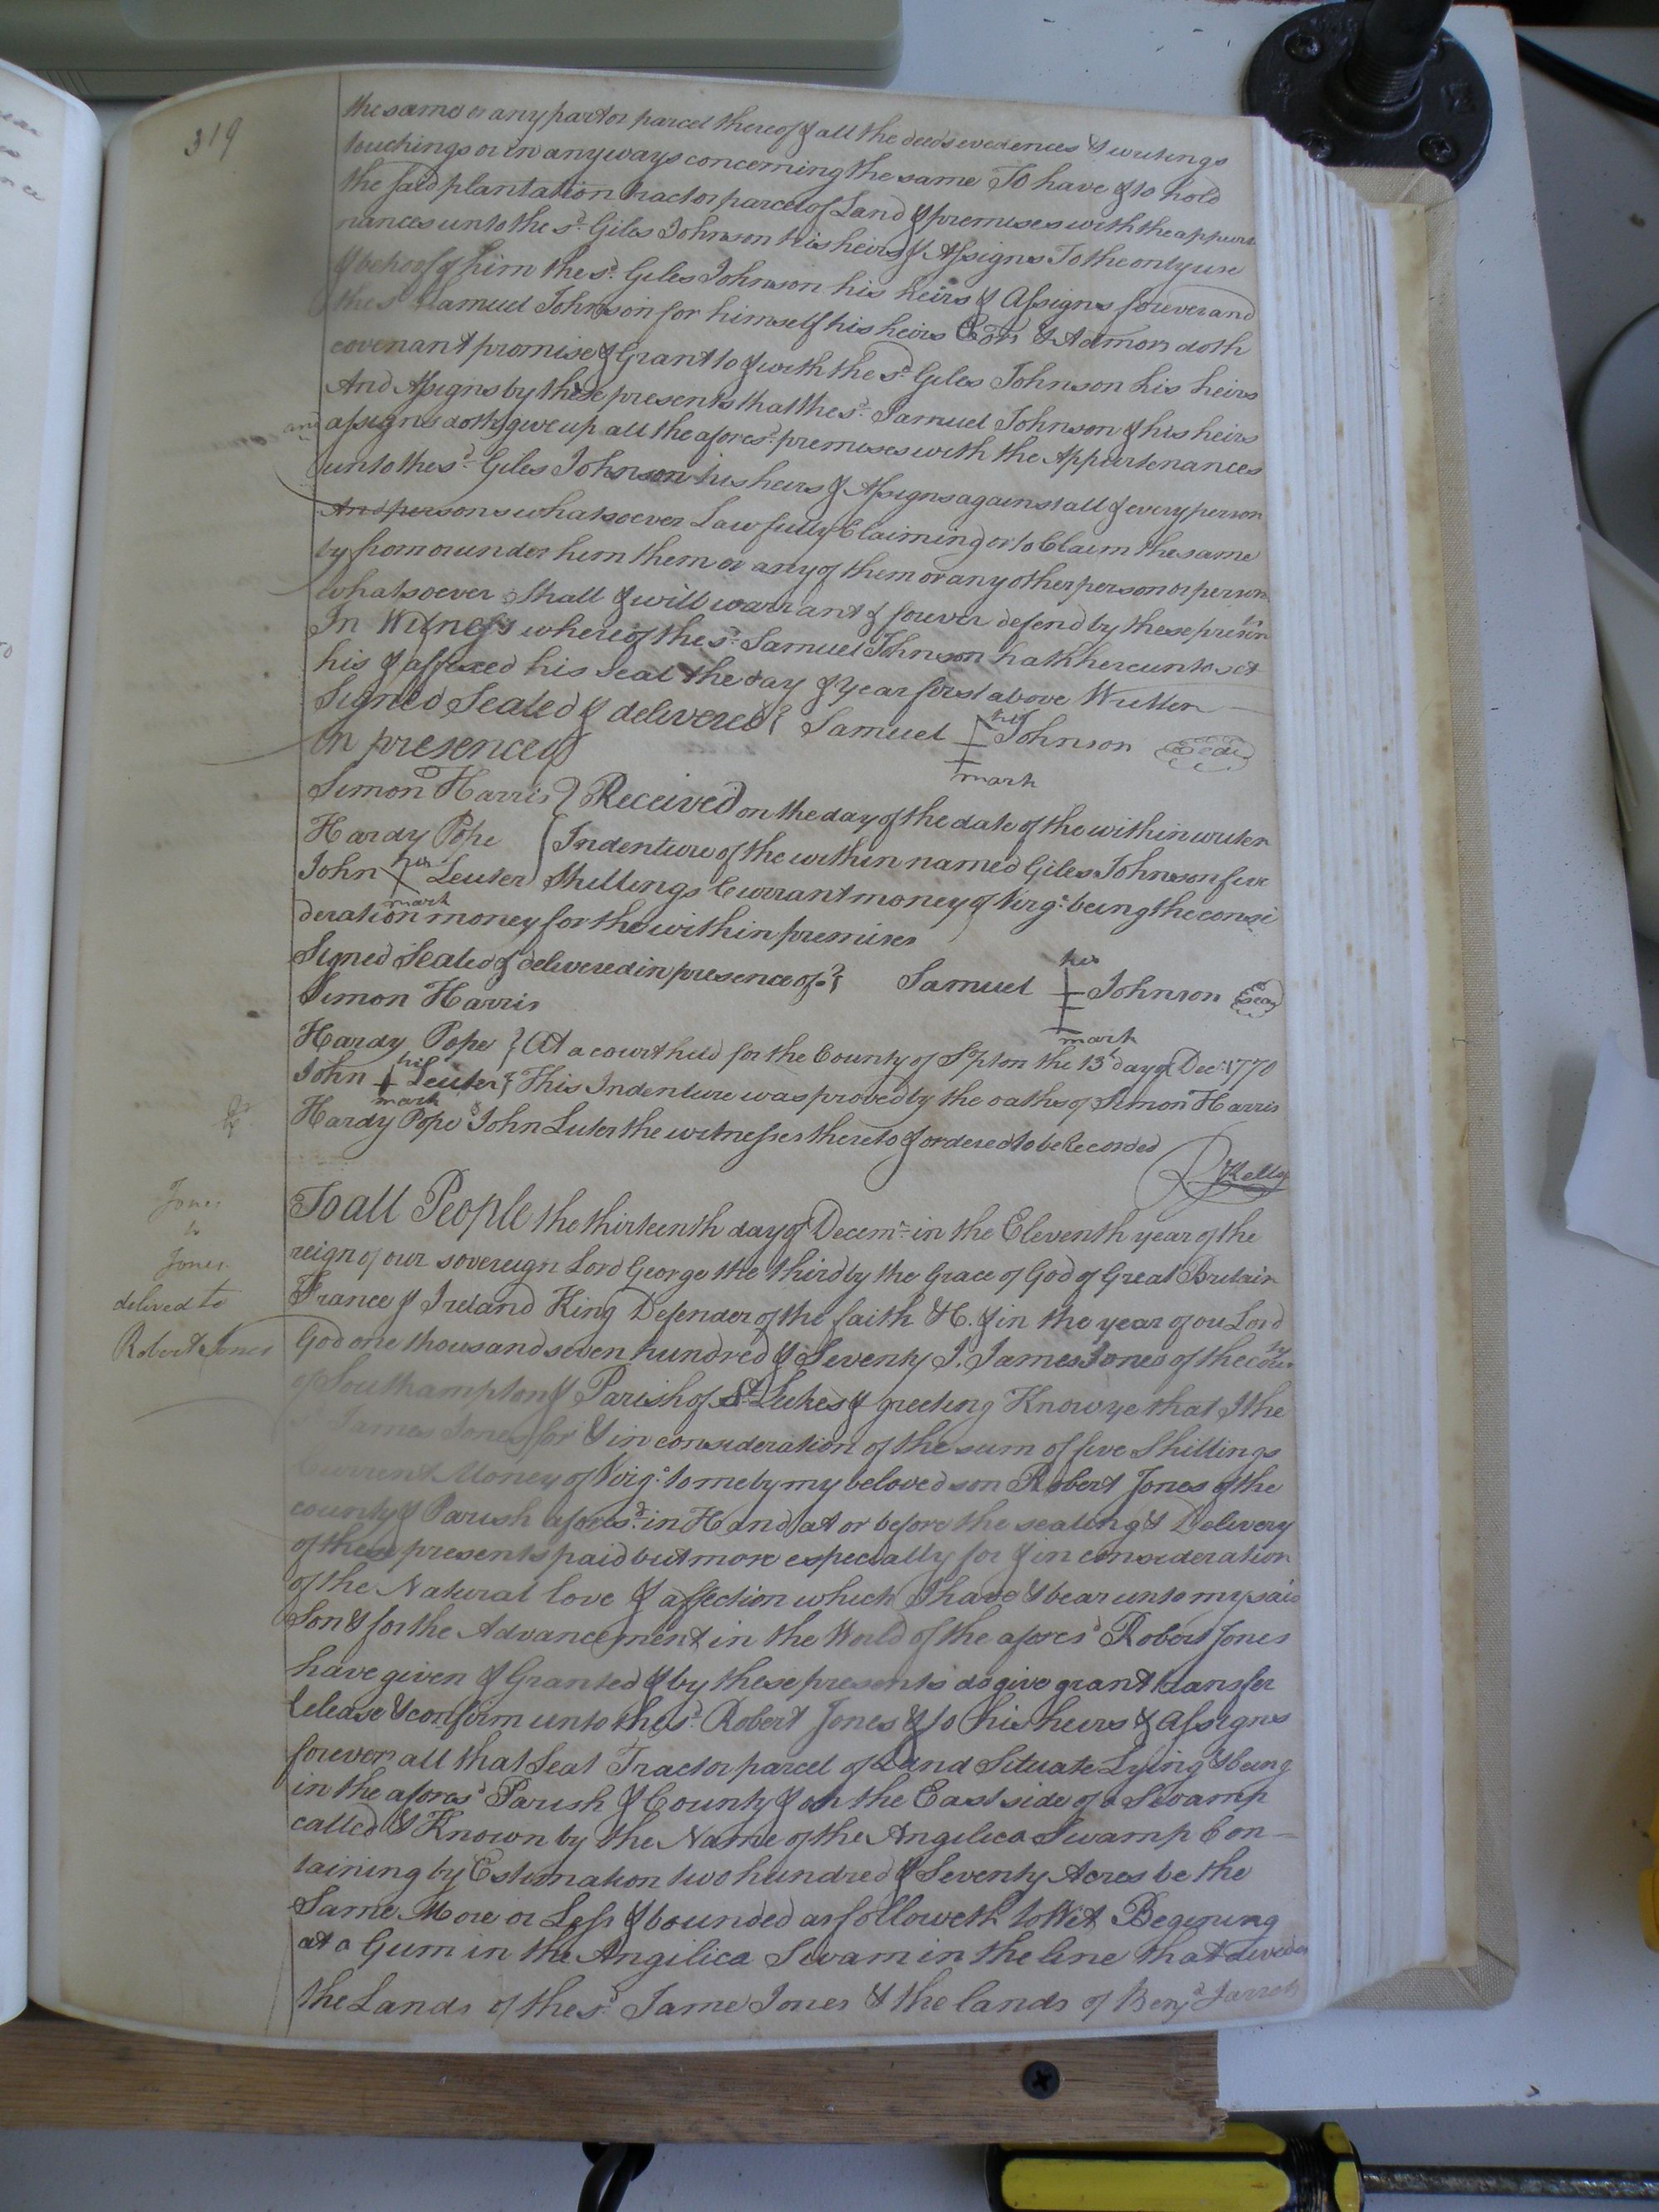 319
the same or any part or parcel thereof & all the deeds evedences & writings
touchings or in anyways concerning the same To have & to hold
the said plantation tract or parcel of Land & premises with the appurt
nances unto the sd. Giles Johnson his heirs & Assigns To the only use
& behoof of him the sd. Giles Johnson his heirs & Assigns forever and
the sd Samuel Johnson for himself his heirs Exors & Admors doth
covenant promise & Grant to & with the sd. Giles Johnson his heirs
And Assigns by these presents that the sd. Samuel Johnson & his heirs
and assigns doth give up all the aforesd. premises with the Appurtenances
unto the sd. Giles Johnson his heirs & Assigns against all & every person
And persons whatsoever Lawfully Claiming or to Claim the same
by from or under him them or any of them or any other person or persons
whatsoever Shall & will warrant & forever defend by these presents
In Witness whereof the sd. Samuel Johnson hath hereunto set
his & affixed his seal the day & year first above Written
Signed Sealed & delivered Samuel his Johnson Seal
in presence of mark
Simon Harris Received on the day of the date of the within writen
Hardy Pope Indenture of the within named Giles Johnson five
John his Leuter Shillings Currant money of Virga. being the consi
mark
deration money for the within premises
Signed Sealed & delivered in presence of Samuel his Johnson Seal
Simon Harris mark
Hardy Pope At a court held for the County of Spton the 13th day of Decr. 1770
John his Leuter This Indenture was proved by the oaths of Simon Harris
mark
Hardy Pope & John Luter the witnesses thereto & ordered to be Recorded
R Kello
Jones
to
Jones
delived to
Robert Jones
To all People the thirteenth day of Decemr. in the Eleventh year of the
reign of our sovereign Lord George the third by the Grace of God of Great Britain
France & Ireland King Defender of the faith &C. & in the year of ou Lord
God one thousand seven hundred & Seventy I. James Jones of the County
of Southampton & Parish of St. Lukes & greeting Know ye that I the
sd James Jones for & in consideration of the sum of five Shillings
Current Money of Virga. to me by my beloved son Robert Jones of the
county & Parish aforesd. in Hand at or before the sealing & Delivery
of these presents paid but more especially for & in consideration
of the Natural love & affection which I have & bear unto my said
Son & for the Advancement in the World of the aforesd Robert Jones
have given & Granted & by these presents do give grant transfer
release & confirm unto the sd. Robert Jones & to his heirs & assigns
forever all that Seat Tract or parcel of Land Situate Lying & being
in the aforesd Parish & County & on the East side of a Swamp
called & Known by the Name of the Angelica Swamp Con-
taining by Estimation two hundred & Seventy Acres be the
Same More or Less & bounded as followeth to Wit Begining
at a Gum in the Angilica Swam in the line that devides
the Lands of the sd. Jame Jones & the lands of Benja. Jarrett